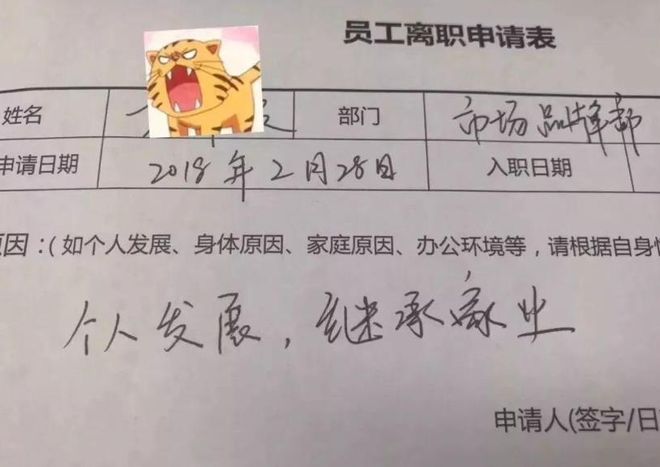 员工离职申请表
姓名 部门 市场品牌部
申请日期 2018年2月28日 入职日期
原因:(如个人发展、身体原因、家庭原因、办公环境等,请根据自身情
个人发展,继承家业
申请人(签字/日